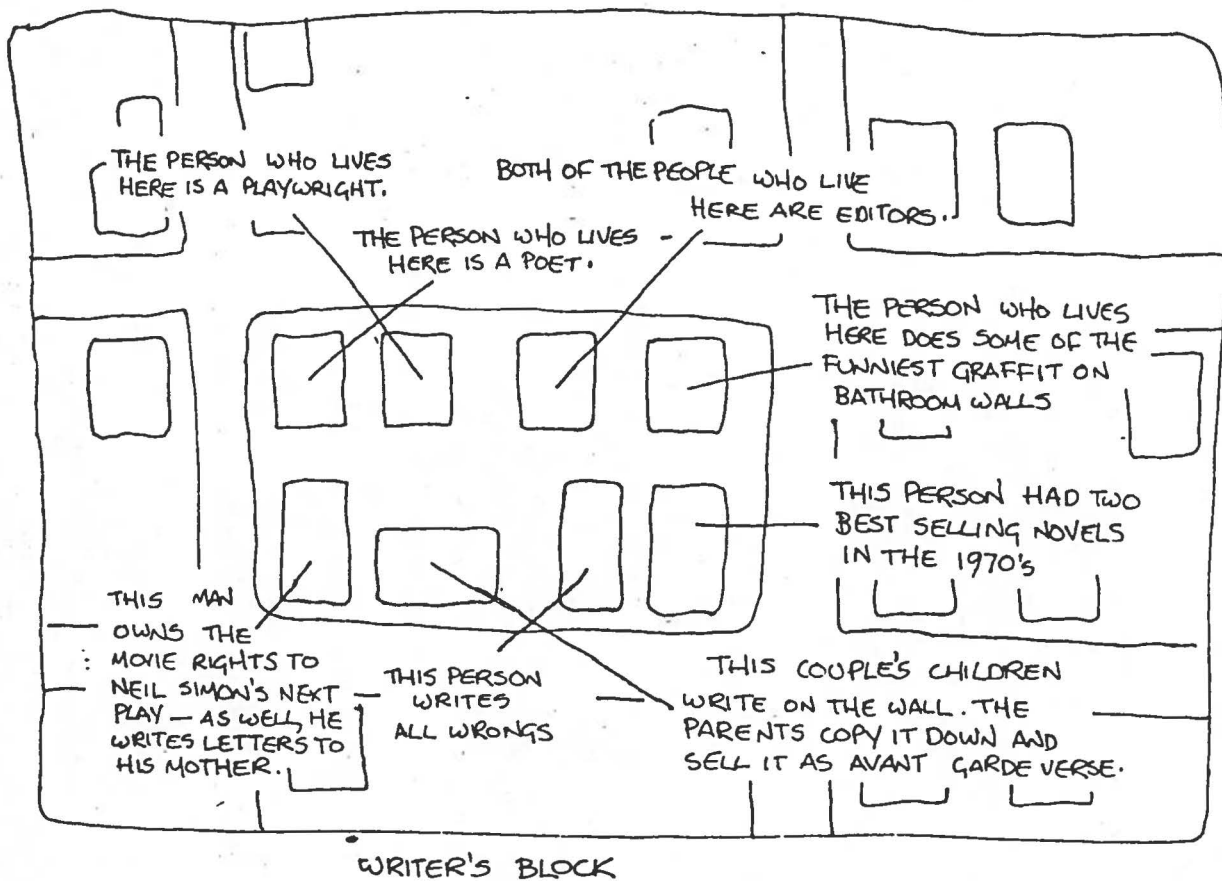 THE PERSON WHO LIVES
HERE IS A PLAYWRIGHT.
BOTH OF THE PEOPLE WHO LIVE
HERE ARE EDITORS.
THE PERSON WHO LIVES
HERE IS A POET.
THE PERSON WHO LIVES
HERE DOES SOME OF THE
FUNNIEST GRAFFIT ON
BATHROOM WALLS
THIS PERSON HAD TWO
BEST SELLING NOVELS
IN THE 1970's
THIS MAN
OWNS THE
MOVIE RIGHTS TO
NEIL SIMON'S NEXT
PLAY — AS WELL, HE
WRITES LETTERS TO
HIS MOTHER.
THIS PERSON
WRITES
ALL WRONGS
THIS COUPLE'S CHILDREN
WRITE ON THE WALL. THE
PARENTS COPY IT DOWN AND
SELL IT AS AVANT GARDE VERSE.
WRITER'S BLOCK